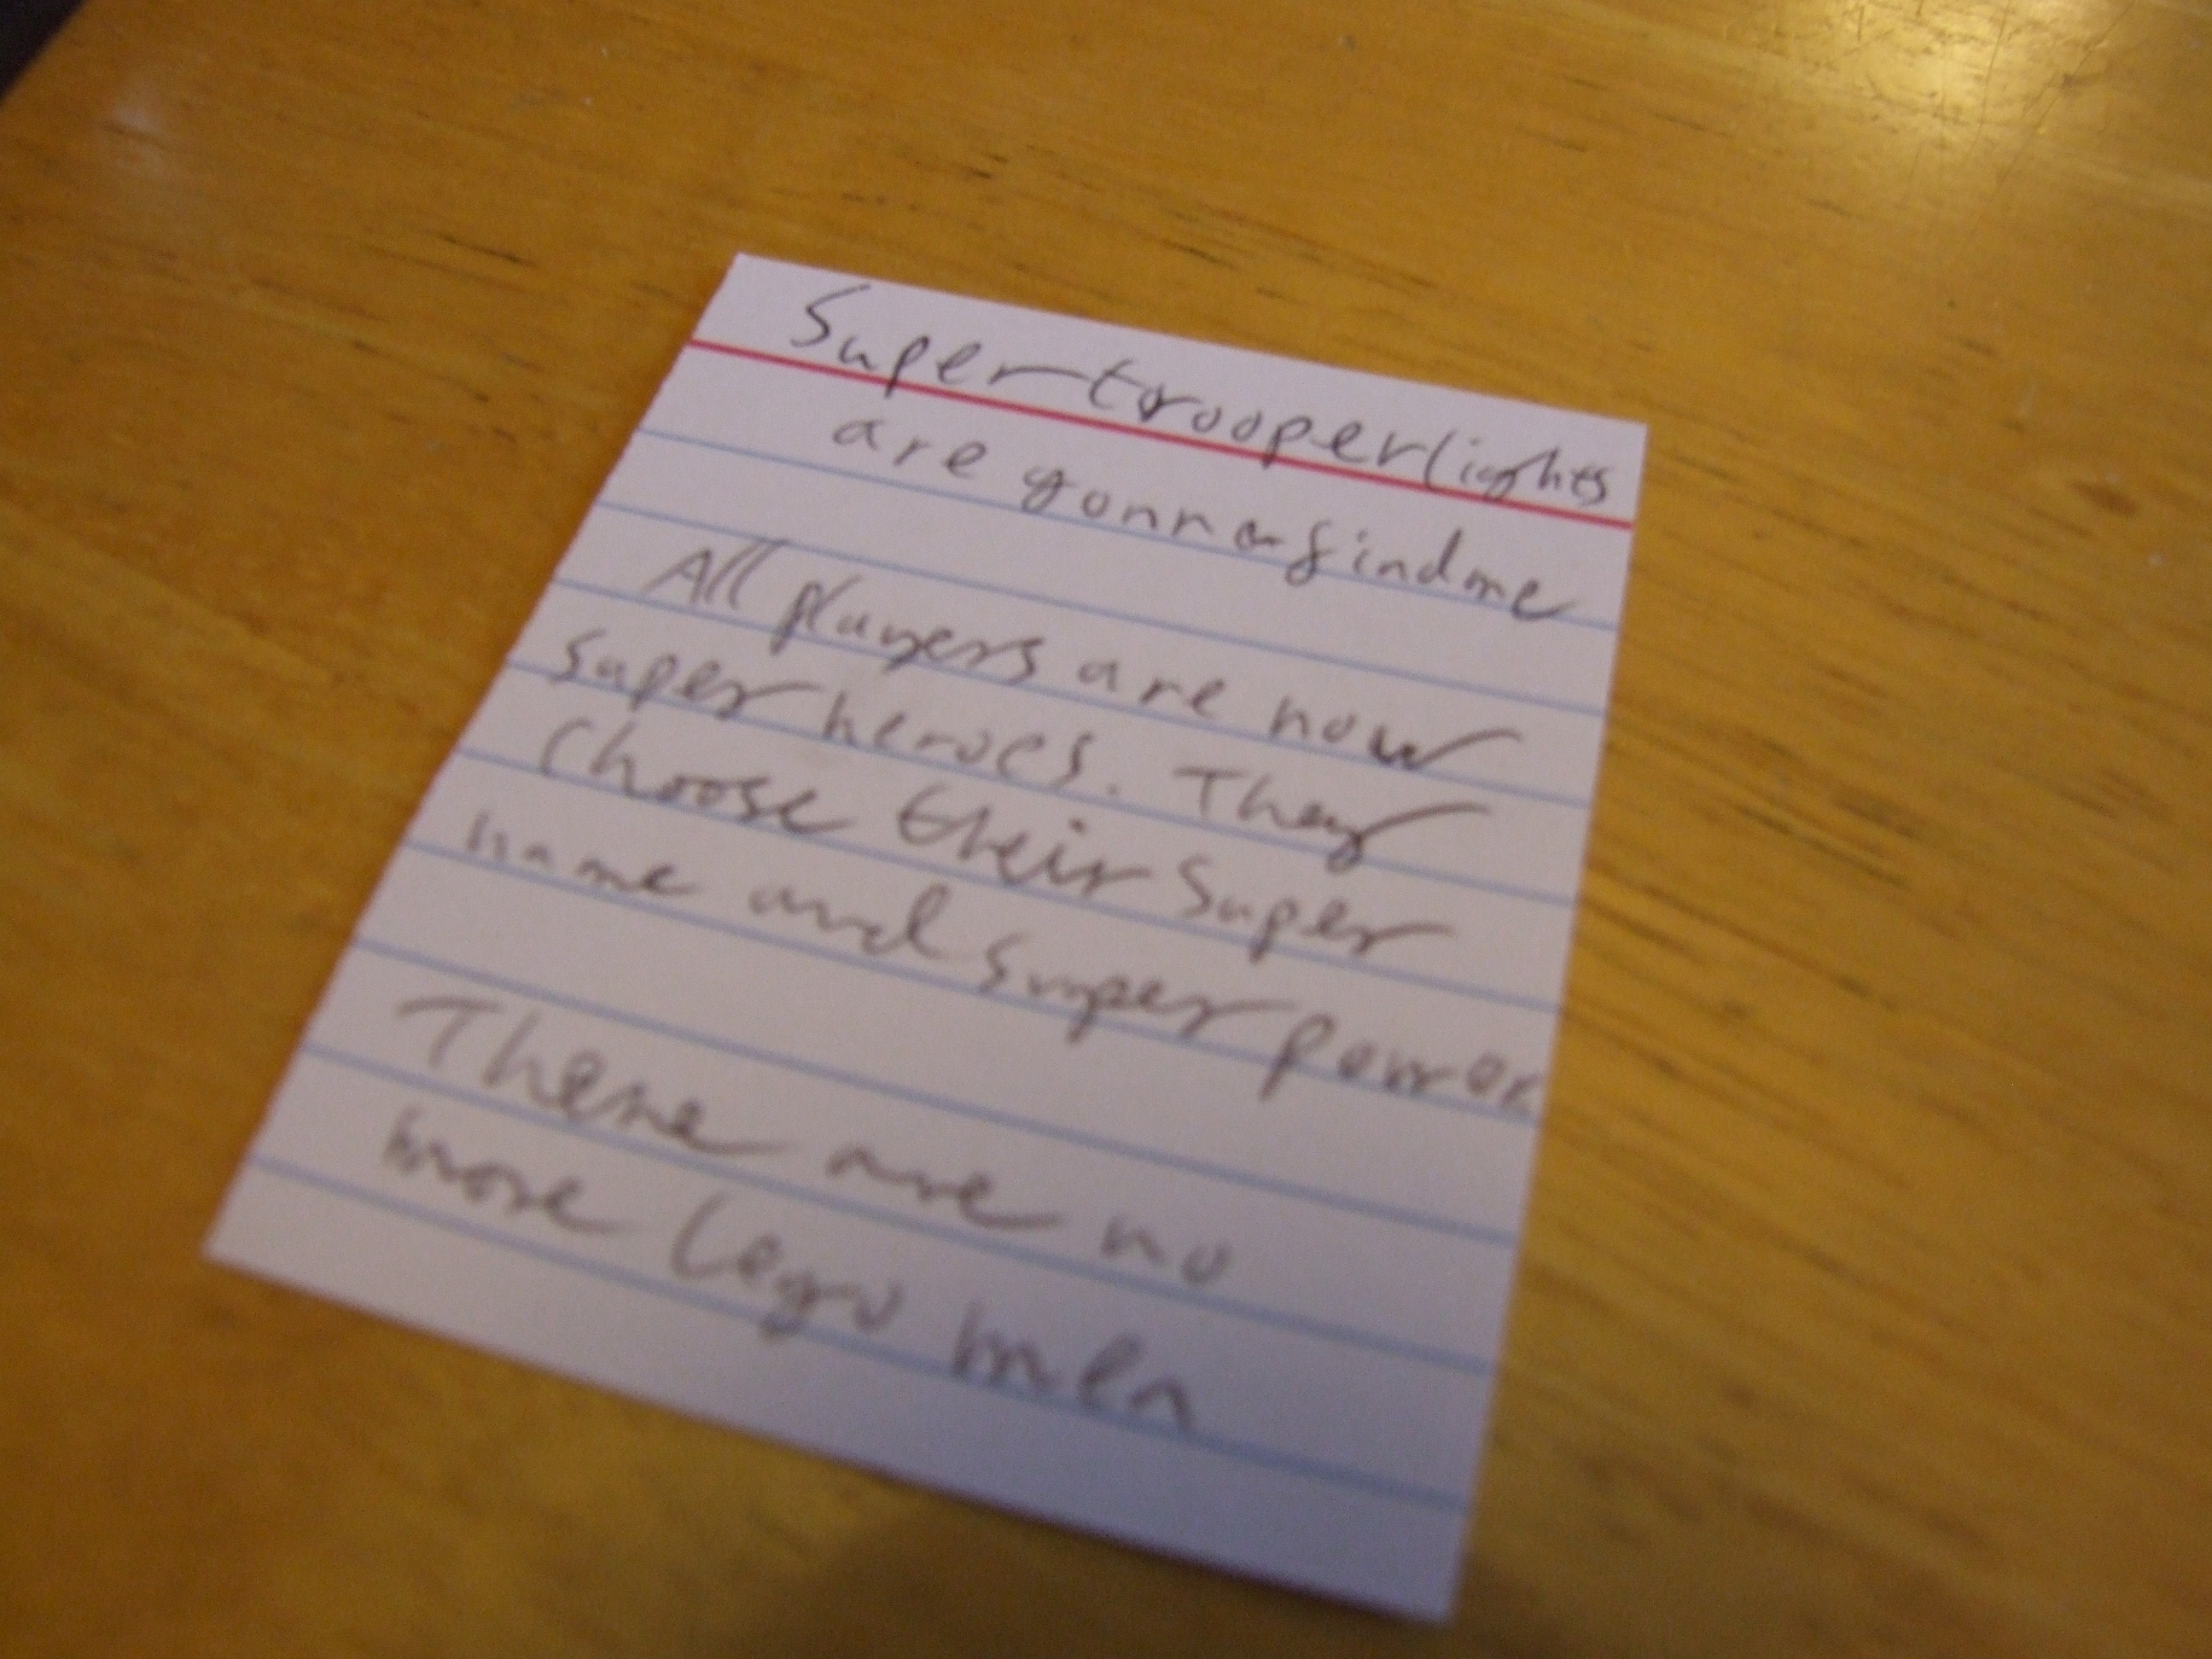 Super trooper lights
are gonna find me
All players are now
super heroes. They
choose their super
name and super power
There are no
more lego men